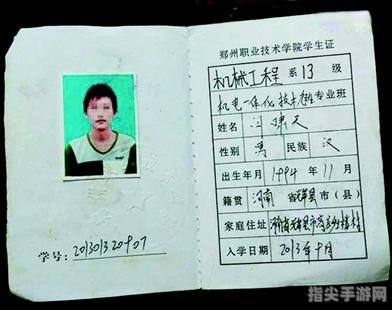 学号：201301320907
郑州职业技术学院学生证
机械工程 系 13 级
机电一体化技术 班专业班
姓名 闫啸天
性别 男 民族 汉
出生年月 1994年11月
籍贯 河南 省 县 市（县）
家庭住址 河南省
入学日期 2013年9月
指尖手游网